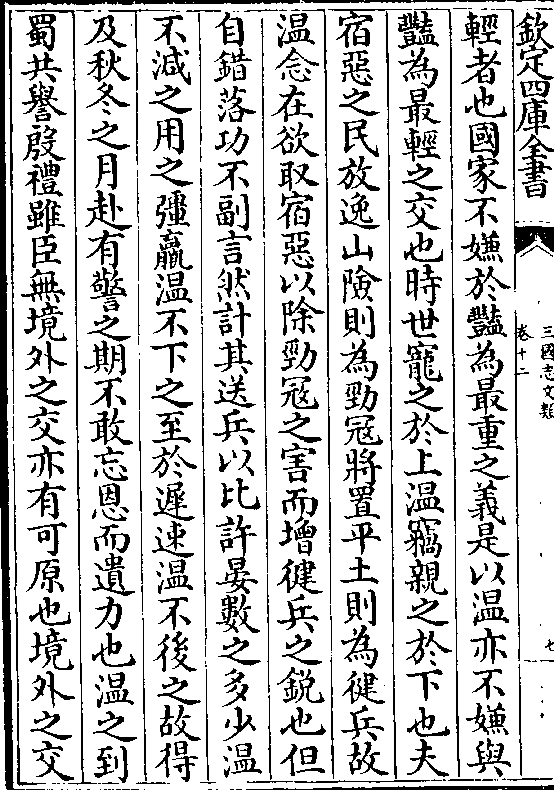 欽定四庫全書
三國志文類
卷十二
七
輕者也國家不嫌於豔為最重之義是以温亦不嫌與
豔為最輕之交也時世寵之於上温竊親之於下也夫
宿惡之民放逸山險則為勁冦將置平土則為健兵故
温念在欲取宿惡以除勁冦之害而增健兵之銳也但
自錯落功不副言然計其送兵以比許晏數之多少温
不減之用之彊羸温不下之至於遲速温不後之故得
及秋冬之月赴有警之期不敢忘恩而遺力也温之到
蜀共譽殷禮雖臣無境外之交亦有可原也境外之交